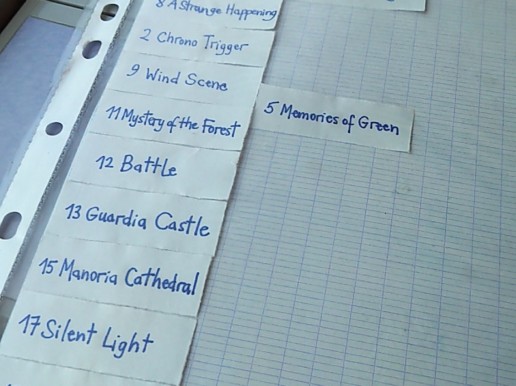 8 A Strange Happening
2 Chrono Trigger
9 Wind Scene
11 Mystery of the Forest
5 Memories of Green
12 Battle
13 Guardia Castle
15 Manoria Cathedral
17 Silent Light